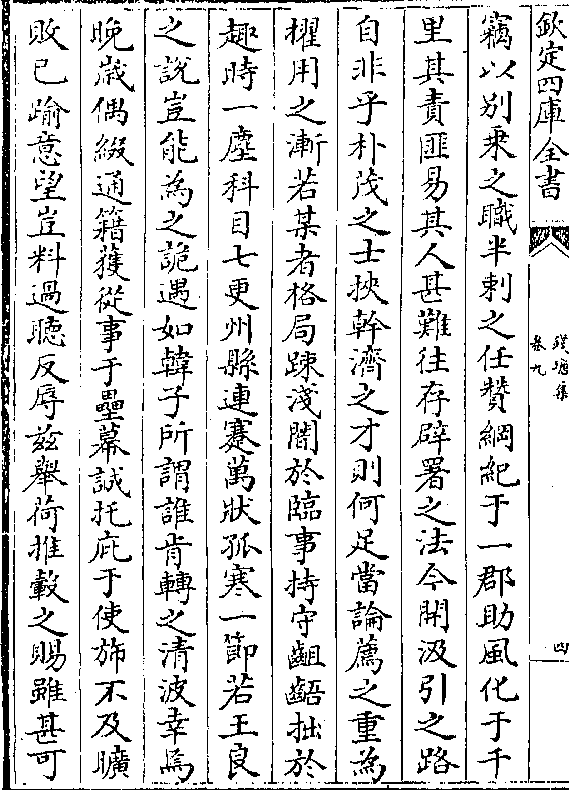 欽定四庫全書
卷九
四
竊以别乘之職半刺之任賛綱紀于一郡助風化于千
里其責匪易其人甚難往存辟署之法今開汲引之路
自非乎朴茂之士挾幹濟之才則何足當論薦之重為
擢用之漸若某者格局踈淺闇於臨事持守齟齬拙於
趣時一塵科目七更州縣連蹇萬狀孤寒一節若王良
之說豈能為之詭遇如韓子所謂誰肯轉之清波幸焉
晚歳偶綴通籍獲從事于壘幕誠托庇于使斾不及曠
敗已踰意望豈料過聽反辱兹舉荷推轂之賜雖甚可